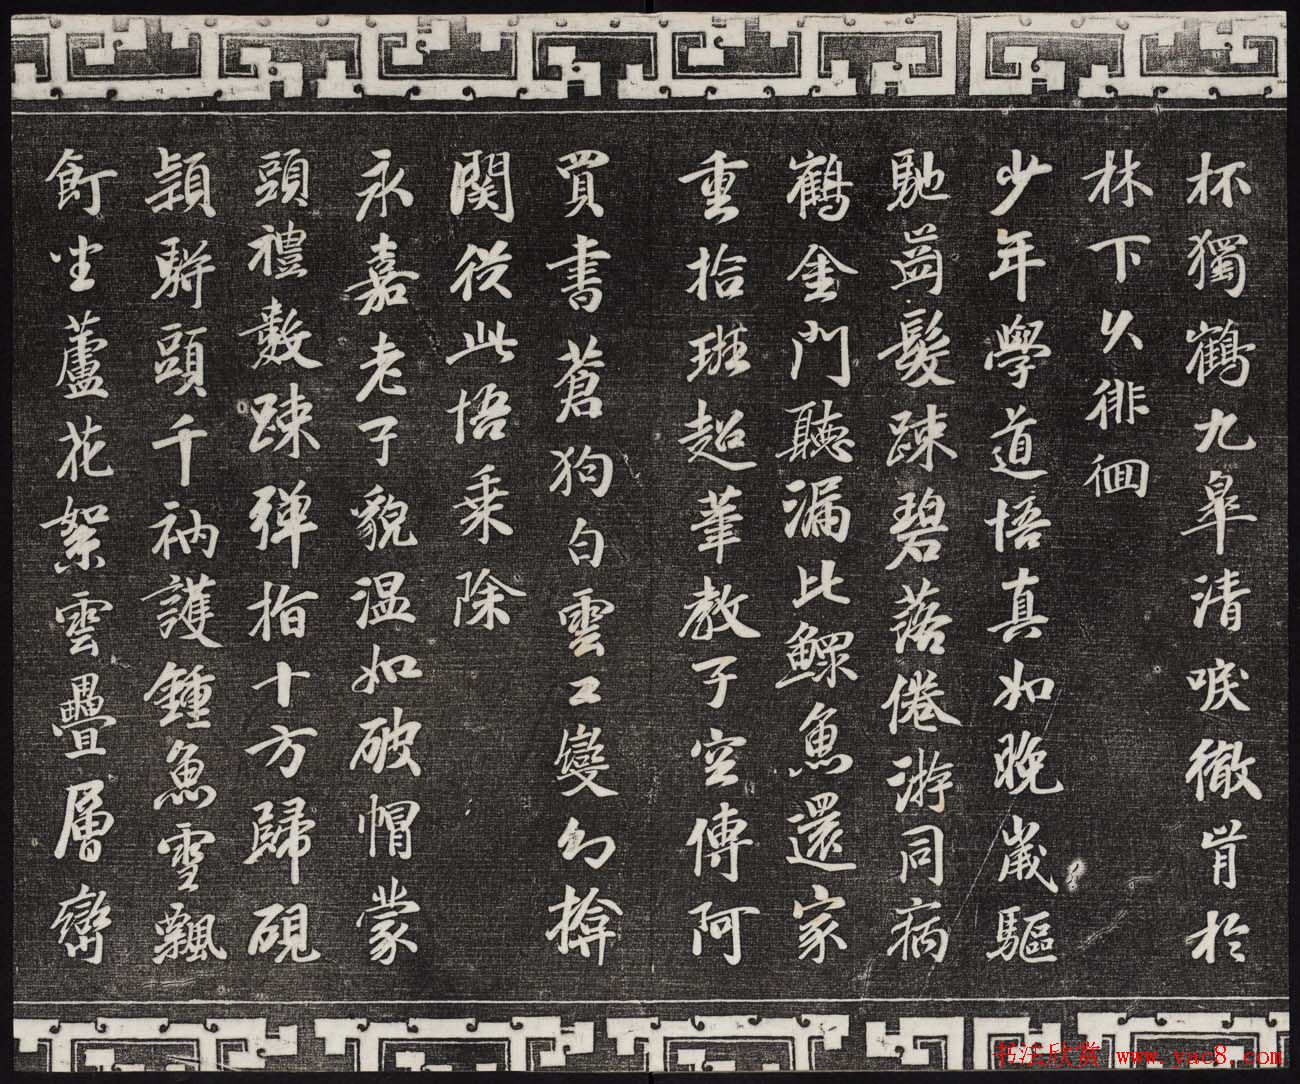 杯獨鶴九皋清唳徹肯於
林下久徘徊
少年學道悟真如晚歲驅
馳齒髮踈碧落倦游同病
鶴金門聽漏比鰥魚還家
重拾班超筆教子空傳阿
買書蒼狗白雲工變幻揜
関從此悟乗除
永嘉老子貌温如破帽蒙
頭禮數踈弹指十方歸硯
頴駢頭千衲護鍾魚雪飄
飣坐蘆花絮雲疊層巒
书法欣赏 www.yac8.com